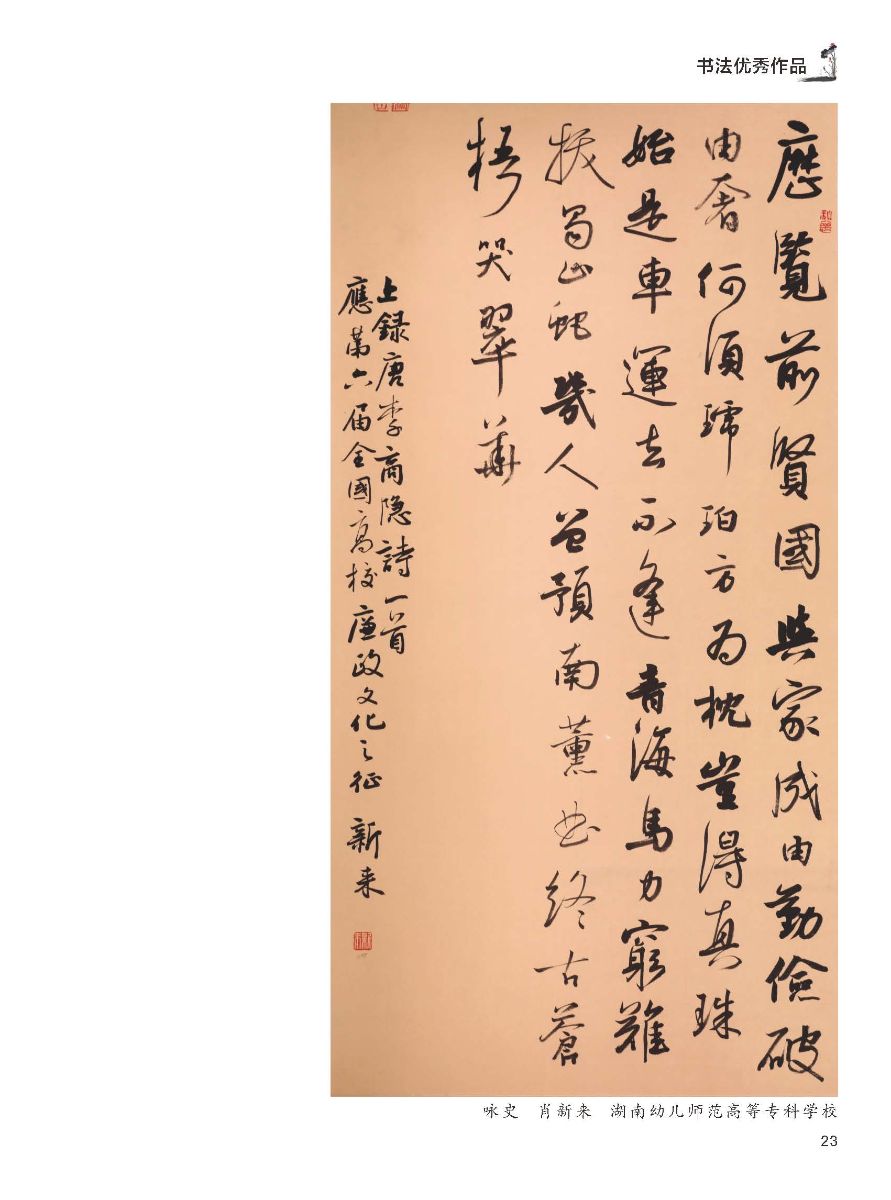 书法优秀作品
歷覽前賢國與家成由勤儉破
由奢何須琥珀方為枕豈得真珠
始是車運去不逢青海馬力窮難
拔蜀山蛇幾人曾預南薰曲終古蒼
梧哭翠華
上録唐李商隐詩一首
應第六届全國高校廉政文化之征 新来
咏史 肖新来 湖南幼儿师范高等专科学校
23